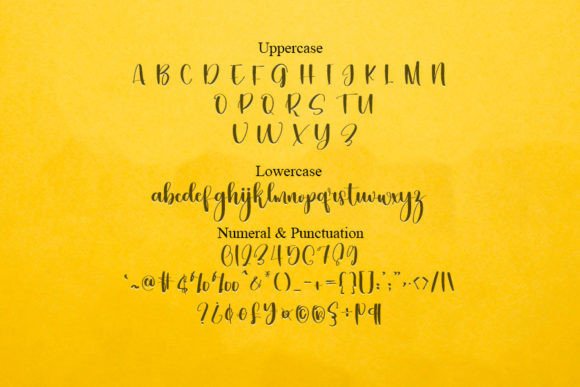 Uppercase
A B C D E F G H I J K L M N
O P Q R S T U
V W X Y Z
Lowercase
abcdefghijklmnopqrstuvwxyz
Numeral & Punctuation
0123456789
`~@#$%‰^&*()_-+={}[]:;'",.<>/|\
?¿¢°£¥¤©®§÷P¶